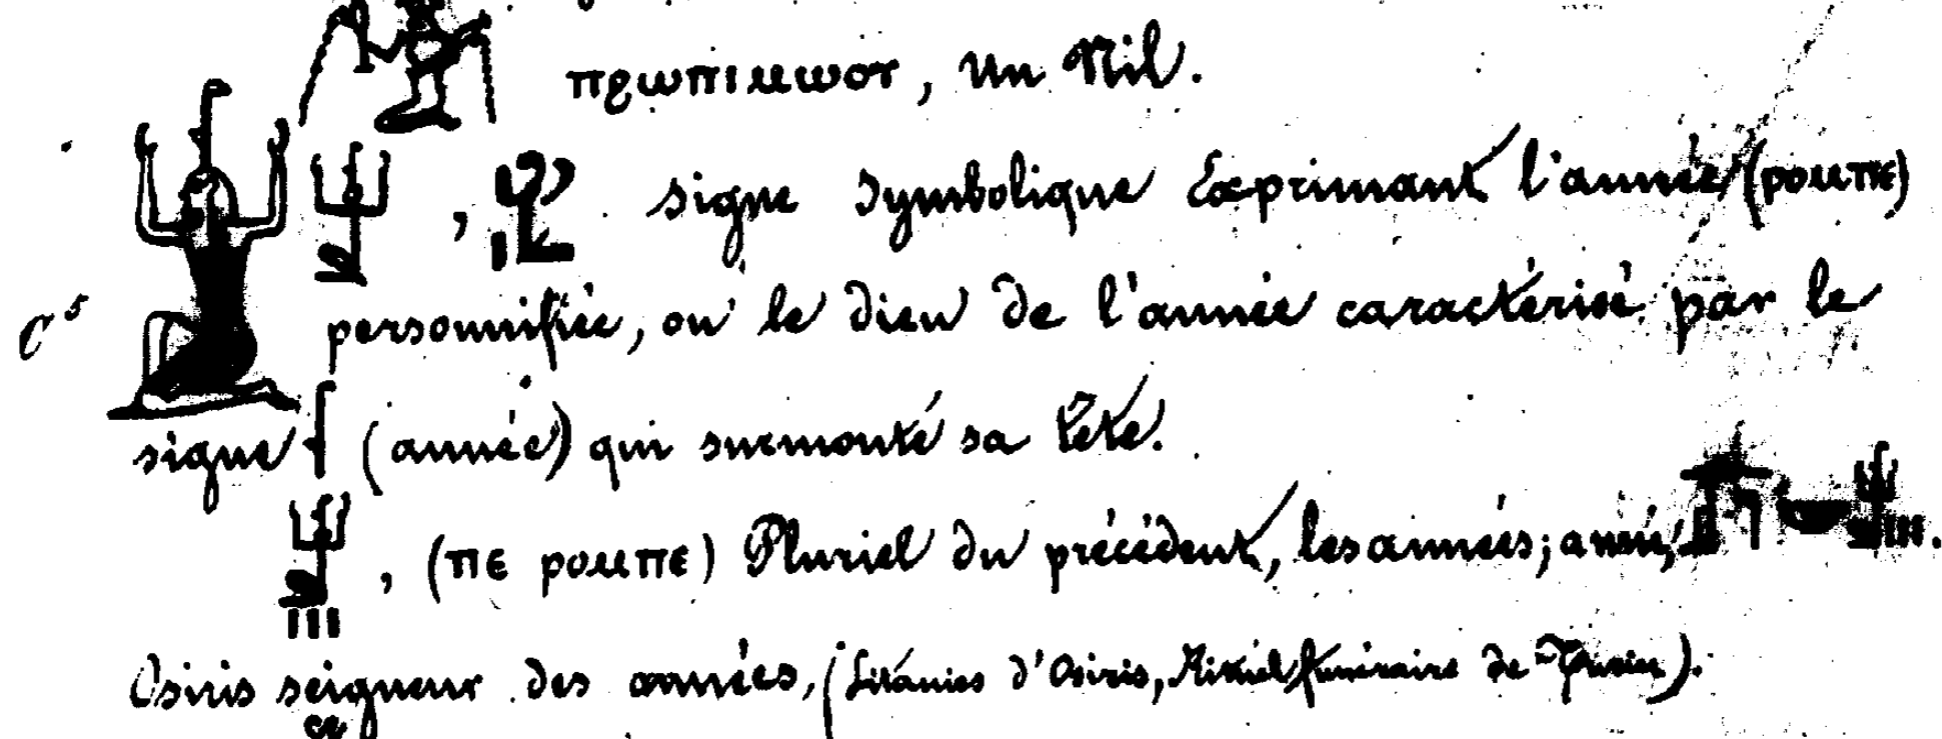 πϩωπιμωογ, un Nil.
, signe symbolique Exprimant l'année (ρομπε)
C⁵ personnifiée, ou le dieu de l'année caractérisé par le
signe (année) qui surmonte sa tête.
, (πε ρομπε) Pluriel du précédent, les années; ainsi,
Osiris seigneur des années, (Litanies d'Osiris, Rituel funéraire de Turin).